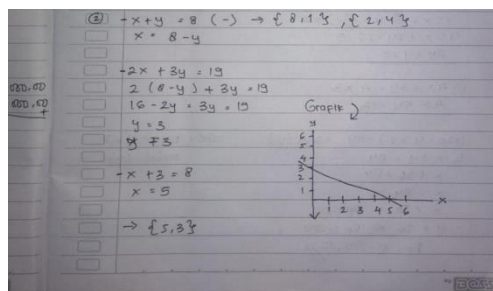 ② - x + y = 8 (-) → { 8, 1 } , { 2, 4 }
x = 8 - y
- 2x + 3y = 19
2 (8 - y) + 3y = 19
16 - 2y = 3y = 19
y = 3
- x + 3 = 8
x = 5
→ { 5, 3 }
000,00
000,00
+
Grafik
y
6
5
4
3
2
1
1 2 3 4 5 6
x